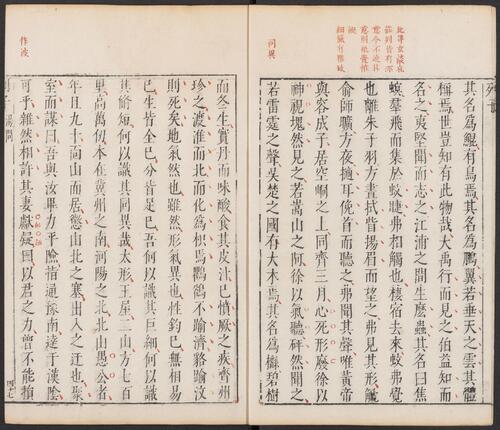 其名爲鯤有鳥焉其名爲鵬翼若垂天之雲其體
稱焉世豈知有此物哉大禹行而見之伯益知而
名之夷堅聞而志之江浦之間生麽蟲其名曰焦
螟羣飛而集於蚊睫弗相觸也棲宿去來蚊弗覺
也離朱子羽方晝拭眥揚眉而望之弗見其形䚦
俞師曠方夜擿耳俛首而聽之弗聞其聲唯黃帝
與容成子居空峒之上同齊三月心死形廢徐以
神視塊然見之若嵩山之阿徐以氣聽砰然聞之
若雷霆之聲吳楚之國有大木焉其名爲櫾碧樹
同異
而冬生實丹而味酸食其皮汁已憤厥之疾齊州
珍之渡淮而北而化爲枳焉鸜鵒不踰濟貉踰汶
則死矣地氣然也雖然形氣異也性鈞已無相易
已生皆全已分皆足已吾何以識其巨細何以識
其脩短何以識其同異哉太形王屋二山方七百
里高萬仞本在冀州之南河陽之北北山愚公者
年且九十面山而居懲山北之塞出入之迂也聚
室而謀曰吾與汝畢力平險指通豫南達于漢陰
可乎雜然相許其妻獻疑曰以君之力曾不能損
湯問
四七